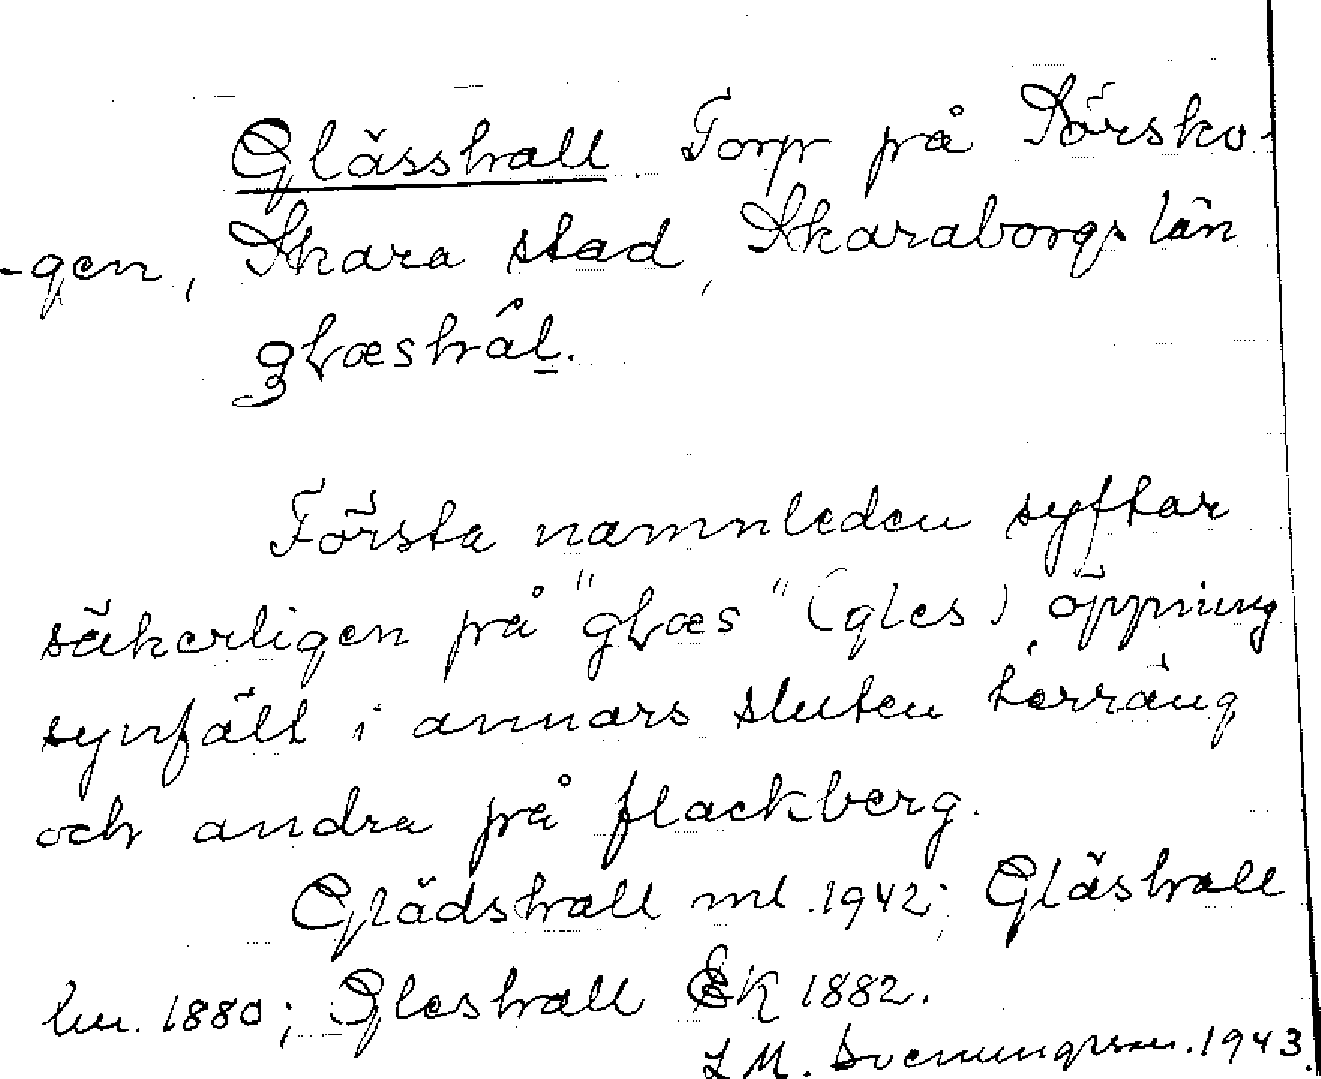 Glässhall Torp på Sörsko-
-gen, Skara stad, Skaraborgs län
glæshål.
Första namnleden syftar
säkerligen på "glæs" (gles) öppning,
synfält i annars sluten terräng
och andra på flackberg.
Glädshall ml. 1942; Gläshall
hu. 1880; Gleshall EK 1882.
L M. Svenungsson. 1943.